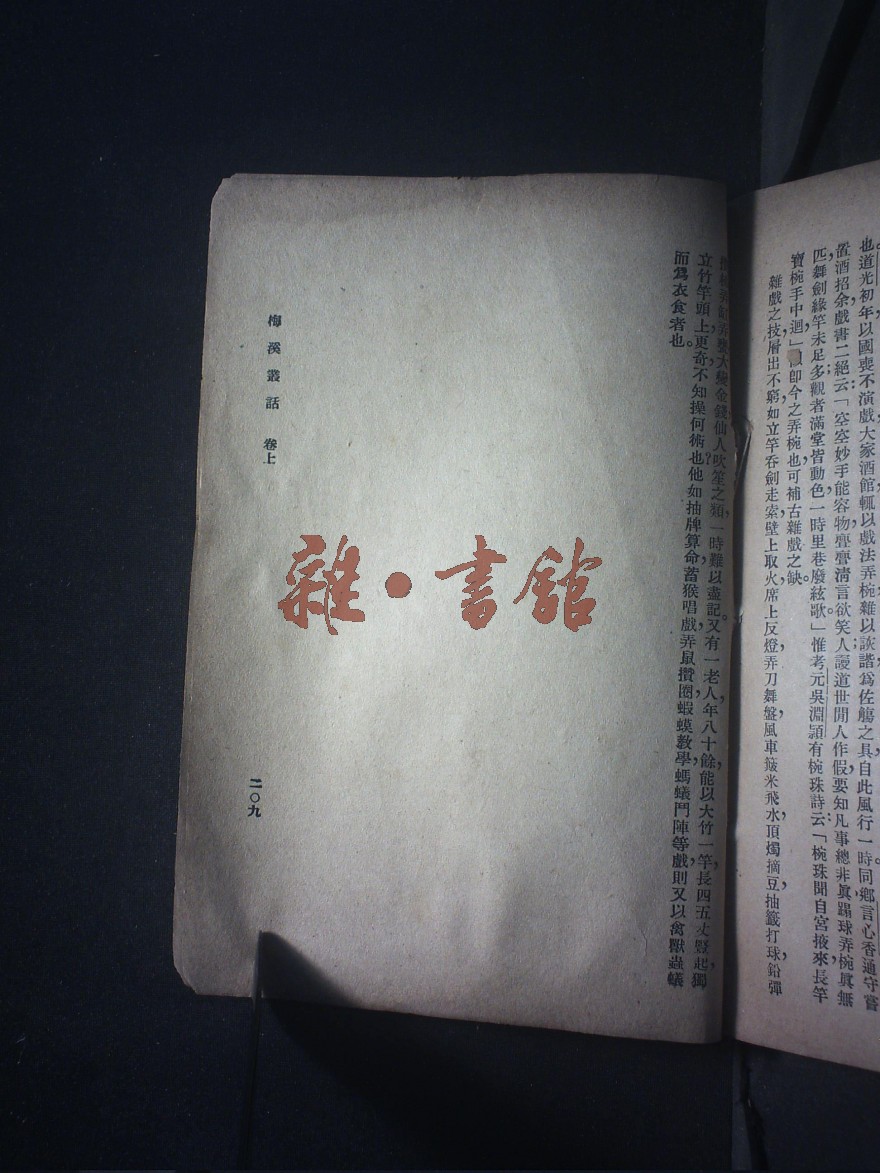 也道光初年以國喪不演戲大家酒館輒以戲法弄椀雜以詼諧爲佐觴之具自此風行一時同鄉言心香通守嘗
置酒招余戲書二絕云「空空妙手能容物亹亹淸言欲笑人謾道世閒人作假要知凡事總非眞蹋球弄椀眞無
匹舞劍緣竿未足多觀者滿堂皆動色一時里巷廢絃歌」惟考元吳淵潁有椀珠詩云「椀珠聞自宮掖來長竿
寶椀手中迴」卽今之弄椀也可補古雜戲之缺。
雜戲之技層出不窮如立竿吞劍走索壁上取火席上反燈弄刀舞盤風車簸米飛水頂燭摘豆抽籤打球鉛彈
大變金錢仙人吹笙之類一時難以盡記又有一老人年八十餘能以大竹一竿長四五丈豎起獨
立竹竿頭上更奇不知操何術也他如抽牌算命蓄猴唱戲弄鼠攢圈蝦蟆教學螞蟻鬥陣等戲則又以禽獸蟲蟻
而爲衣食者也。
梅溪叢話 卷上
二〇九
雜·書館